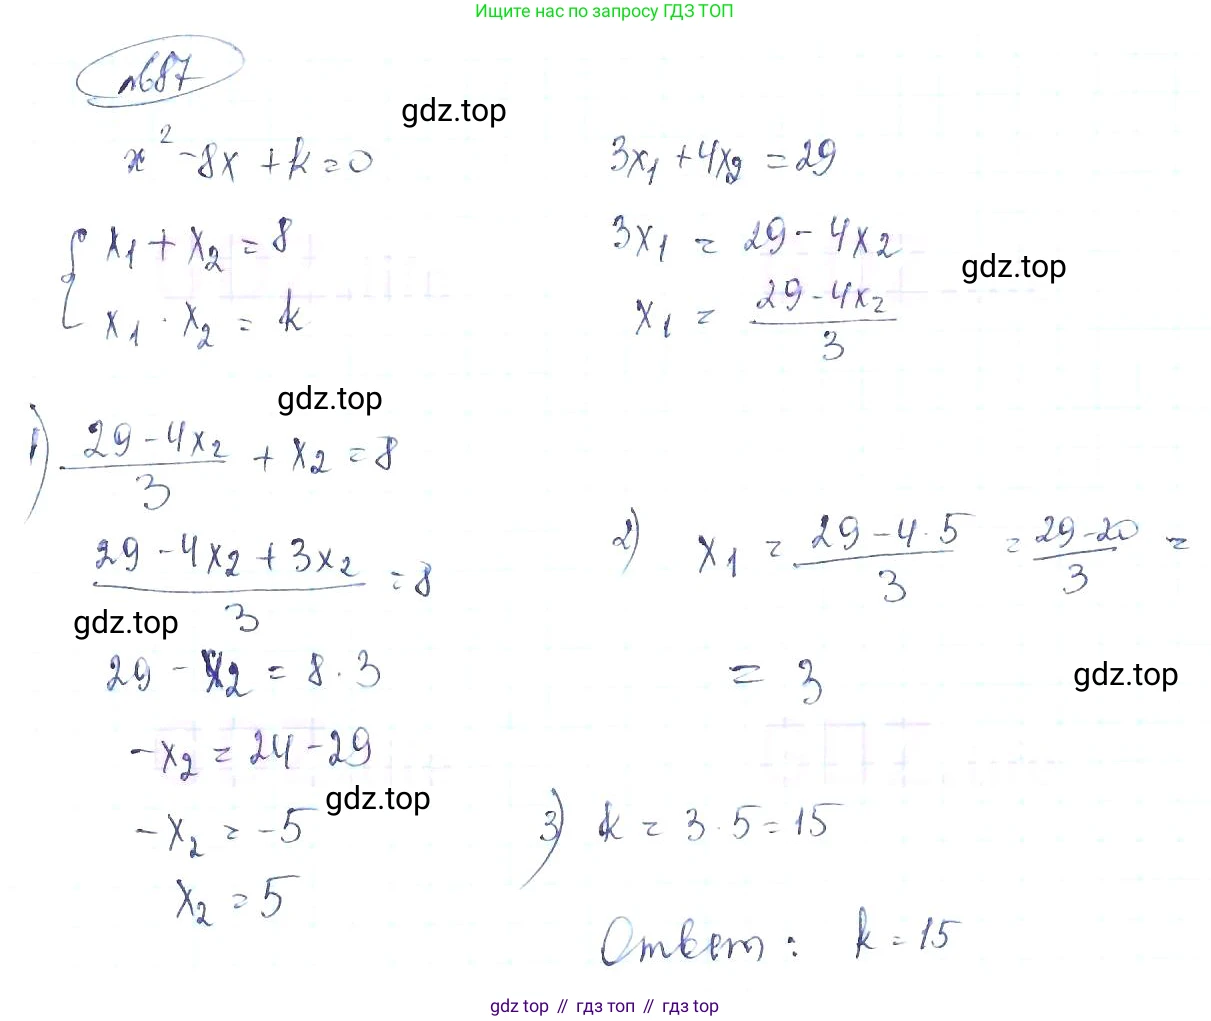 Ищите нас по запросу ГДЗ ТОП
№687
gdz.top
x² - 8x + k = 0
x₁ + x₂ = 8
x₁ · x₂ = k
3x₁ + 4x₂ = 29
3x₁ = 29 - 4x₂
gdz.top
x₁ = (29 - 4x₂)/3
gdz.top
1) (29 - 4x₂)/3 + x₂ = 8
(29 - 4x₂ + 3x₂)/3 = 8
gdz.top
29 - x₂ = 8 · 3
-x₂ = 24 - 29
gdz.top
-x₂ = -5
x₂ = 5
2) x₁ = (29 - 4 · 5)/3 = (29 - 20)/3 =
= 3
gdz.top
3) k = 3 · 5 = 15
Ответ: k = 15
gdz top // гдз топ // гдз top